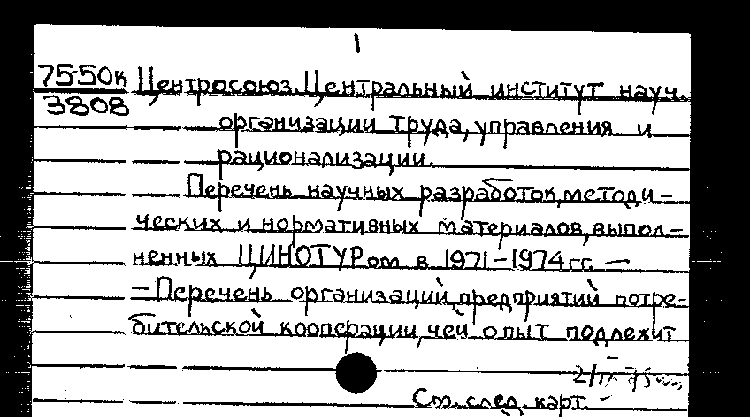 1
75-50к Центросоюз. Центральный институт науч.
3808 организации труда, управления и
рационализации.
Перечень научных разработок, методи-
ческих и нормативных материалов, выпол-
ненных ЦИНОТУРом в 1971-1974 гг. —
— Перечень организаций, предприятий потре-
бительской кооперации, чей опыт подлежит
См. след. карт.